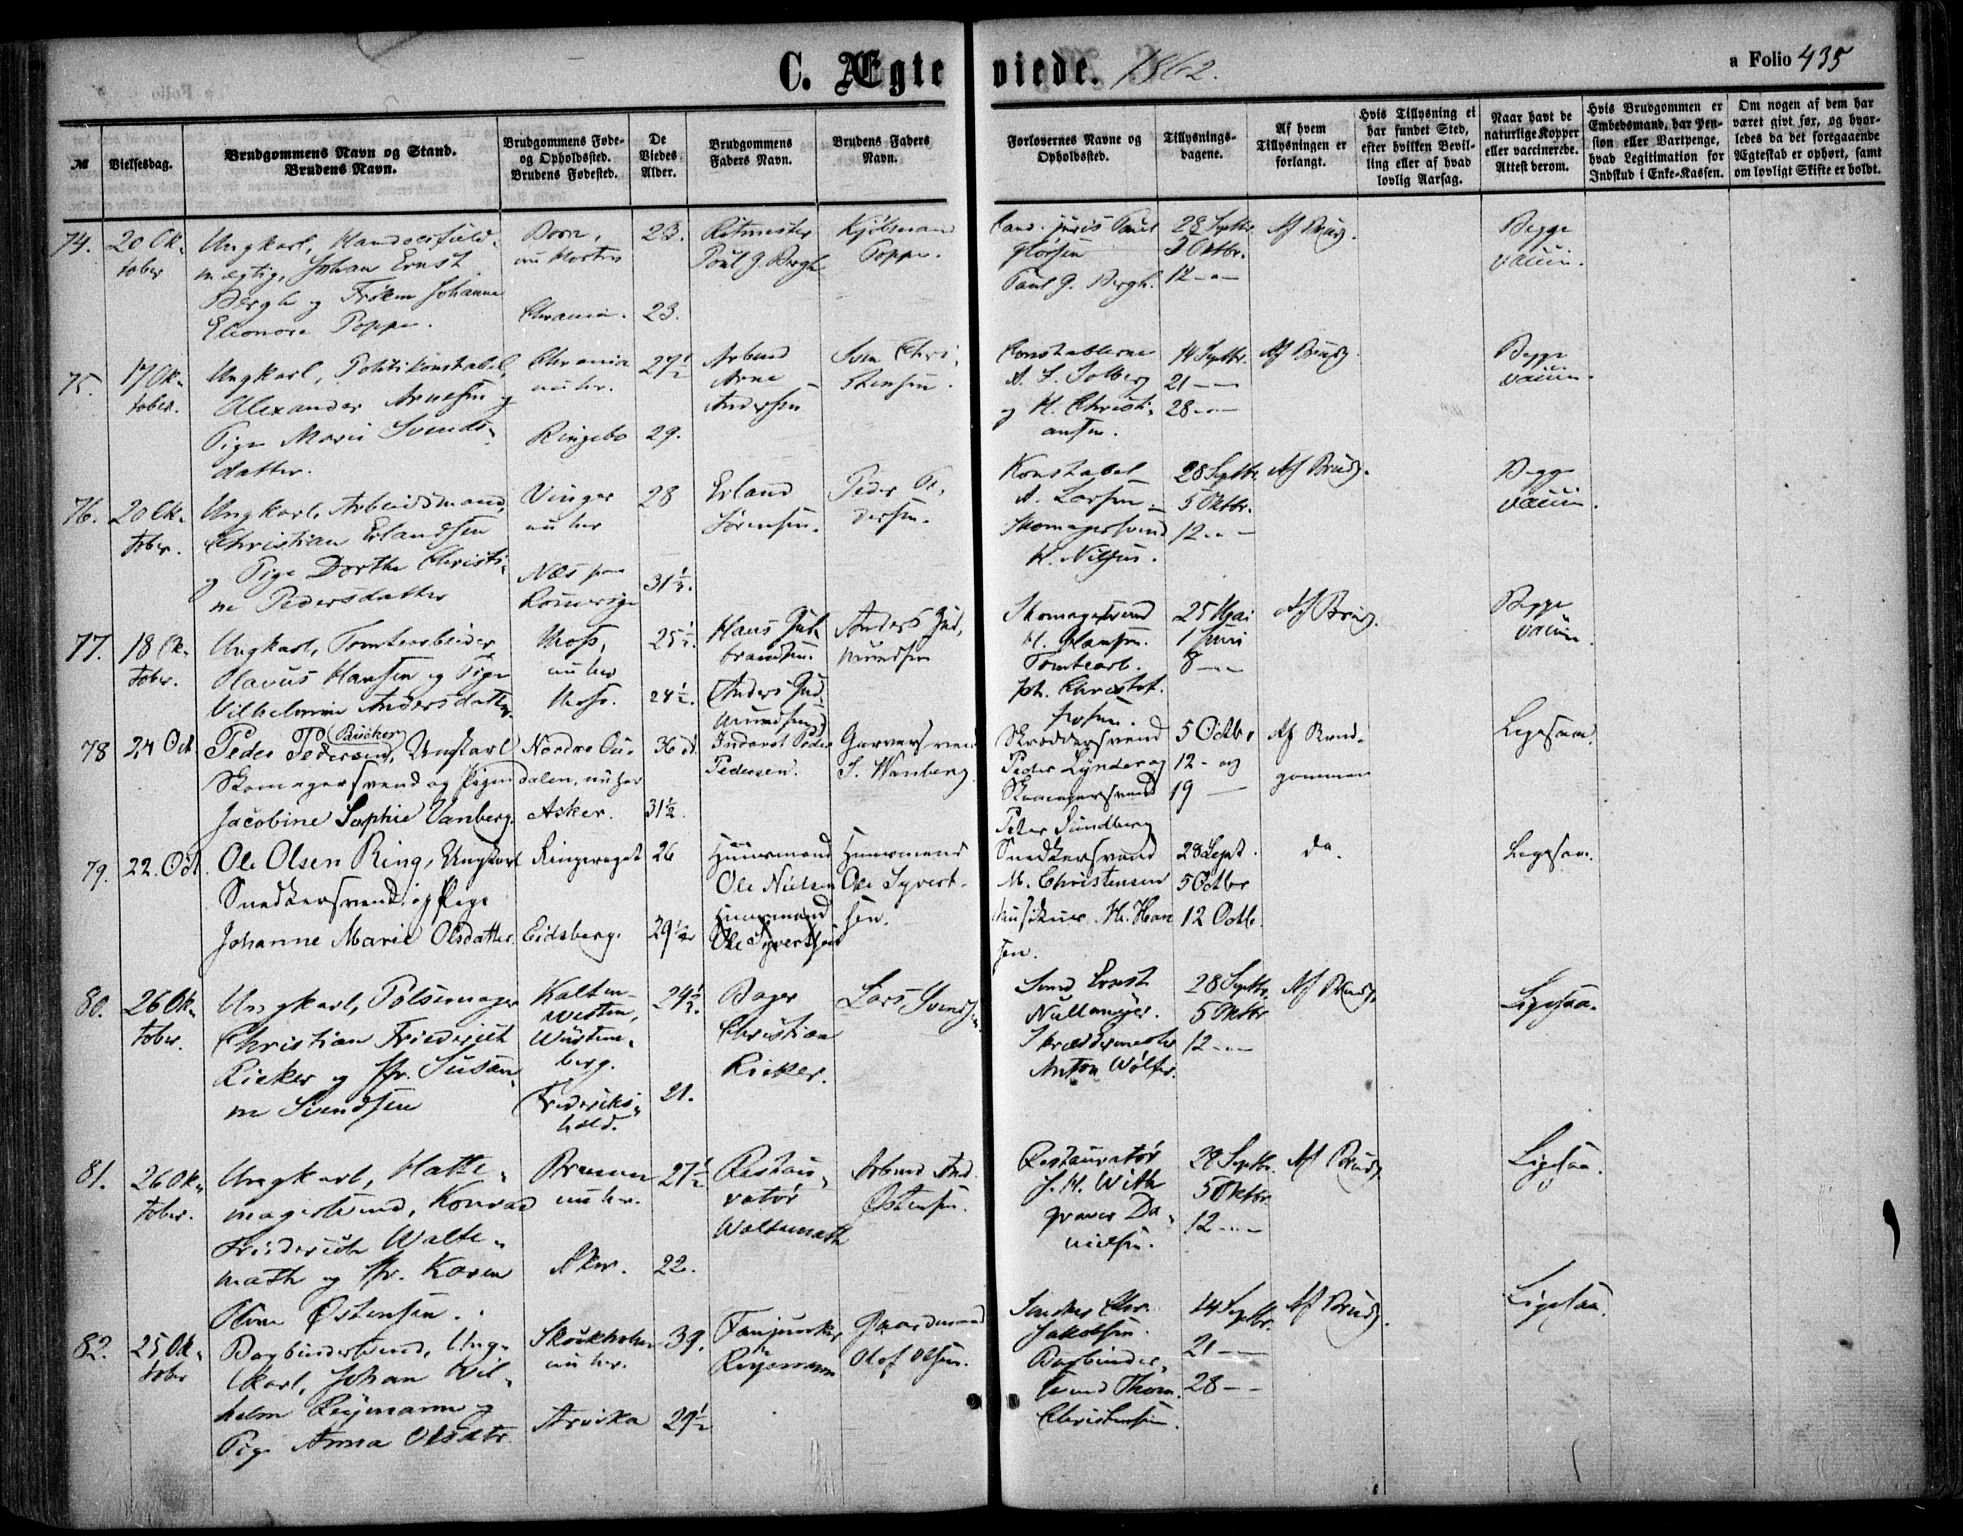 C. Ægte viede. 1862.
a Folio 435
№
Vielsesdag.
Brudgommens Navn og Stand.
Brudens Navn.
Brudgommens Føde-
og Opholdssted.
Brudens Fødested.
De
Viedes
Alder.
Brudgommens
Faders Navn.
Brudens Faders
Navn.
Forlovernes Navne og
Opholdssted.
Tillysnings-
dagene.
Af hvem
Tillysningen er
forlangt.
Hvis Tillysning ei
har fundet Sted,
efter hvilken Bevil-
ling eller af hvad
lovlig Aarsag.
Naar havt de
naturlige Kopper
eller vaccinerede.
Attest derom.
Hvis Brudgommen er
Embedsmand, har Pen-
sion eller Vartpenge,
hvad Legitimation for
Indskud i Enke-Kassen.
Om nogen af dem har
været givt før, og hvor-
ledes da det foregaaende
Ægteskab er ophørt, samt
om lovligt Skifte er holdt.
74.
20 Ok-
tober
Ungkarl, Handelsfuld-
mægtig, Johan Ernst
Bergh og Frøken Johanne
Eleonore Poppe.
nu Horten
Chrania.
23.
23.
Ritmester
Poul G. Bergh
Kjøbmand
Poppe.
Cand. juris Paul
Paul G. Bergh.
28 Septbr.
5 Oktbr.
12 - -
Af Brudg.
Begge
vaccin.
75.
17 Ok-
tober.
Ungkarl, Politikonstabel,
Alexander Arnesen og
Pige Marie Svends-
datter.
Chrania
nu her.
Ringebo
27½
29.
Arbmd
Arne
Andersen
Sven Chri-
stensen.
Constablerne
A. F. Solberg
og H. Christi-
ansen.
14 Septbr.
21 - -
28 - -
Af Brudg.
Begge
vaccin.
76.
20 Ok-
tober.
Ungkarl, Arbeidsmand,
Christian Erlandsen
og Pige Dorthe Christi-
ne Pedersdatter
Vinger
nu her
Næs paa
Romerige
28
31½.
Erland
Sørensen.
Peder Pe-
dersen.
Konstabel
A. Larsen
Skomagersvend
H. Nilsen.
28 Septbr.
5 Oktbr.
12 - -
Af Brudg.
Begge
vaccin.
77.
18 Ok-
tober.
Ungkarl, Tomtearbeider
Olavus Hansen og Pige
Vilhelmine Andersdatter.
Moss,
nu her
Moss.
25½.
24½.
Hans Gul-
bransen.
Anders Gud-
mundsen
Anders Gud-
mundsen
Skomagersvend
H. Hansen.
Tomtearb.
Joh. Christof-
fersen.
25 Mai
1 Juni
8 - -
Af Brudg.
Begge
vaccin.
78
24 Oct
Peder Pedersen, Ungkarl
Skomagersvend og Pigen
Jacobine Sophie Vanberg.
Nordre Ou-
dalen, nu her
Asker.
36
31½.
Inderst Peder
Pedersen.
Garversvend
S. Wanberg.
Skræddersvend
Peder Lynder og
Skomagersvend
Peter Sundberg
5 Octbr
12 - og
19 -
Af Brud-
gommen
Ligesaa.
79.
22. Oct
Ole Olsen Ring, Ungkarl
Snedkersvend og Pige
Johanne Marie Olsdatter.
Ringsaget
Eidsberg.
26
29½
Huusmand
Ole Nielsen
Huusmand
Ole Syvertsen
Huusmand
Ole Syvert-
sen.
Snedkersvend
M. Christensen
Musikus H. Han
sen.
28 Sept.
5 Octbr
12 Octb.
do.
Ligesaa.
80.
26 Ok-
tober.
Ungkarl, Pølsemager
Christian Friederich
Ricker og Jfr. Susan-
ne Svendsen
Kalten-
westen,
Würtem-
berg.
Frederiks-
hald.
24½.
21.
Bager
Christian
Ricker.
Lars Svendsen
Svend Ernst
Nullmeyer.
Skræddermester
Anton Wølfer.
28 Septbr.
5 Oktbr
12 - -
Af Brudg.
Ligesaa.
81.
26 Ok-
tober.
Ungkarl, Hatte-
magersvend, Konrad
Friederich Walte-
math og Jfr. Karen
Oline Østensen.
Bremen
nu her.
Aker.
27½
22.
Restau-
ratør
Waltemath
Arbmd And.
Østensen.
Restauratør
J. H. With
Graver Da-
nielsen.
28 Septbr.
5 Oktbr.
12 - -
Af Brudg.
Ligesaa.
82.
25 Ok-
tober
Bogbindersvend, Ung-
karl, Johan Wil-
helm Reymann og
Pige Anna Olsdtr.
Stockholm
nu her.
Arvika
39.
29½
Fanjunker
Reymann
Gaardmand
Olof Olsen.
Snedker Chr.
Jakobsen.
Bogbinder-
svend Thom.
Christensen.
14 Septbr.
21 - -
28 - -
Af Brudg.
Ligesaa.